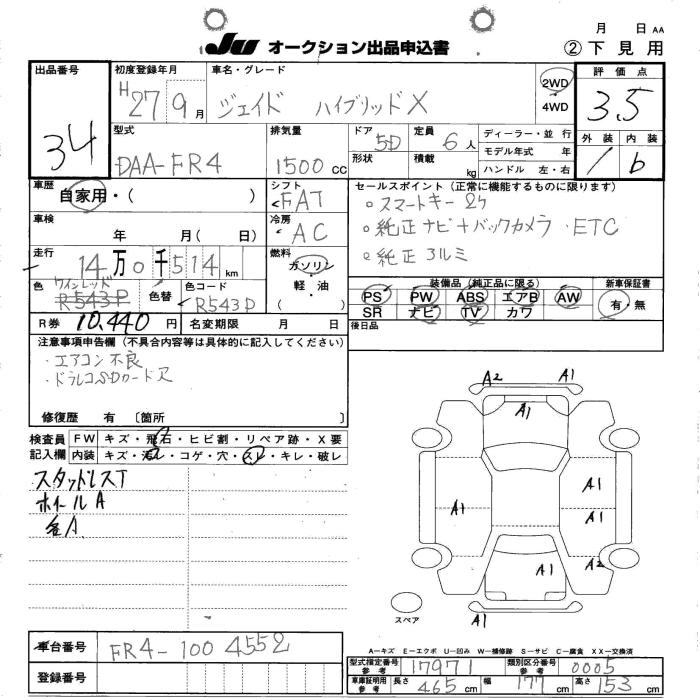 月 日 AA
JU オークション出品申込書 ② 下見用
出品番号 34
初度登録年月 H 27 9月
車名・グレード ジェイド ハイブリッドX
2WD 4WD
評価点 3.5
外装 内装
1 b
型式 DAA-FR4
排気量 1500 cc
ドア 5D 形状
定員 6人 積載 kg
ディーラー・並行
モデル年式 年
ハンドル 左・右
車歴 自家用・( )
シフト FAT
車検 年 月( 日)
冷房 AC
走行 14万0千514 km
燃料 ガソリン・軽油・( )
色 ワインレッド R543P
色替
色コード R543P
R券 10,440円 名変期限 月 日
セールスポイント(正常に機能するものに限ります)
。スマートキー 2ケ
。純正ナビ+バックカメラ・ETC
。純正アルミ
装備品(純正品に限る) 新車保証書
PS PW ABS エアB AW 有・無
SR ナビ TV カワ
後日品
注意事項申告欄(不具合内容等は具体的に記入してください)
・エアコン不良
・ドラレコSDカードヌ
修復歴 有 〔箇所 〕
検査員記入欄
FW キズ・飛石・ヒビ割・リペア跡・X要
内装 キズ・汚レ・コゲ・穴・スレ・キレ・破レ
スタッドレスT
ホイールA
各A
A2 A1
A1
A1 A1
A1
A1 A2
A1
スペア
A−キズ E−エクボ U−凹み W−補修跡 S−サビ C−腐食 XX−交換済
車台番号 FR4-1004552
登録番号
型式指定番号 参考 17971 類別区分番号 参考 0005
車庫証明用 参考 長さ 465 cm 幅 177 cm 高さ 153 cm